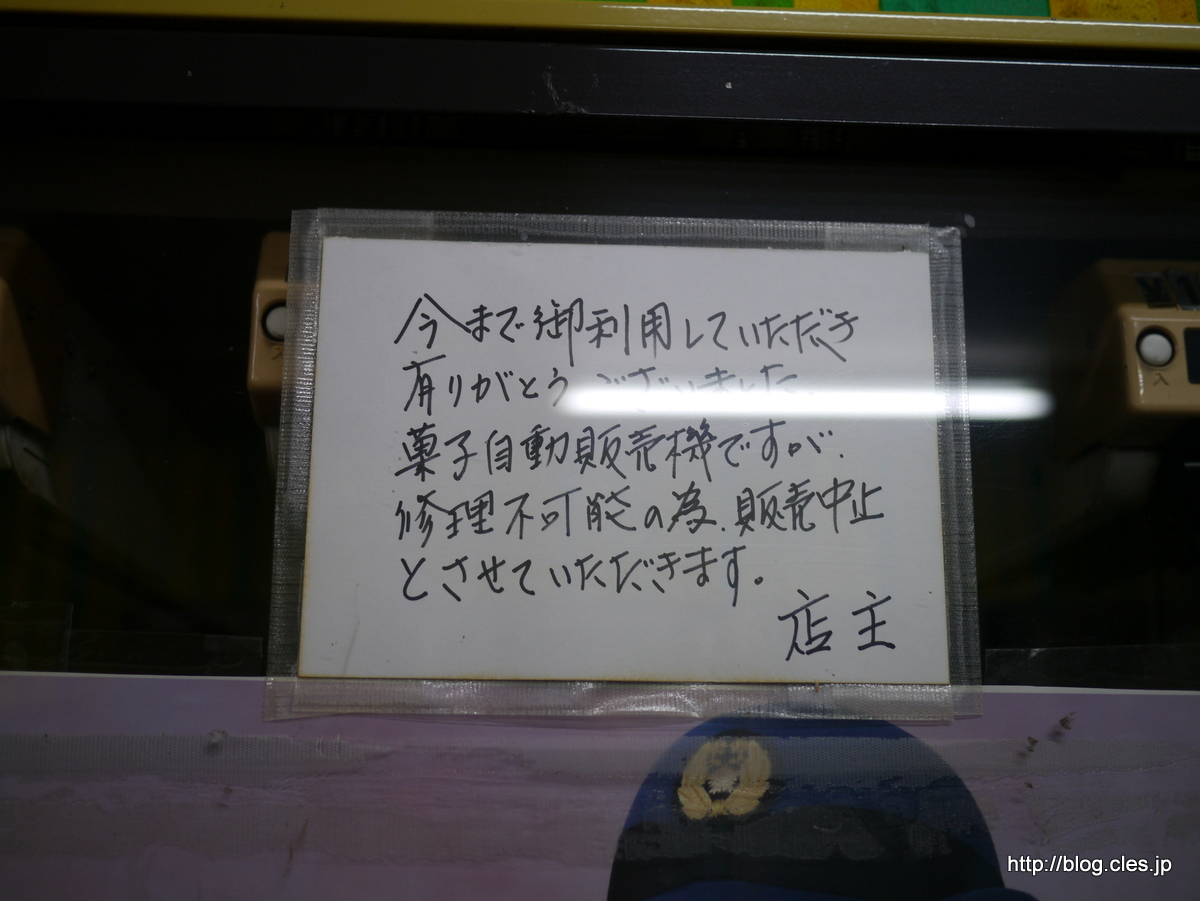 今まで御利用していただき
有りがとうございました.
菓子自動販売機ですが.
修理不可能の為.販売中止
とさせていただきます。
店主
入
入
http://blog.cles.jp